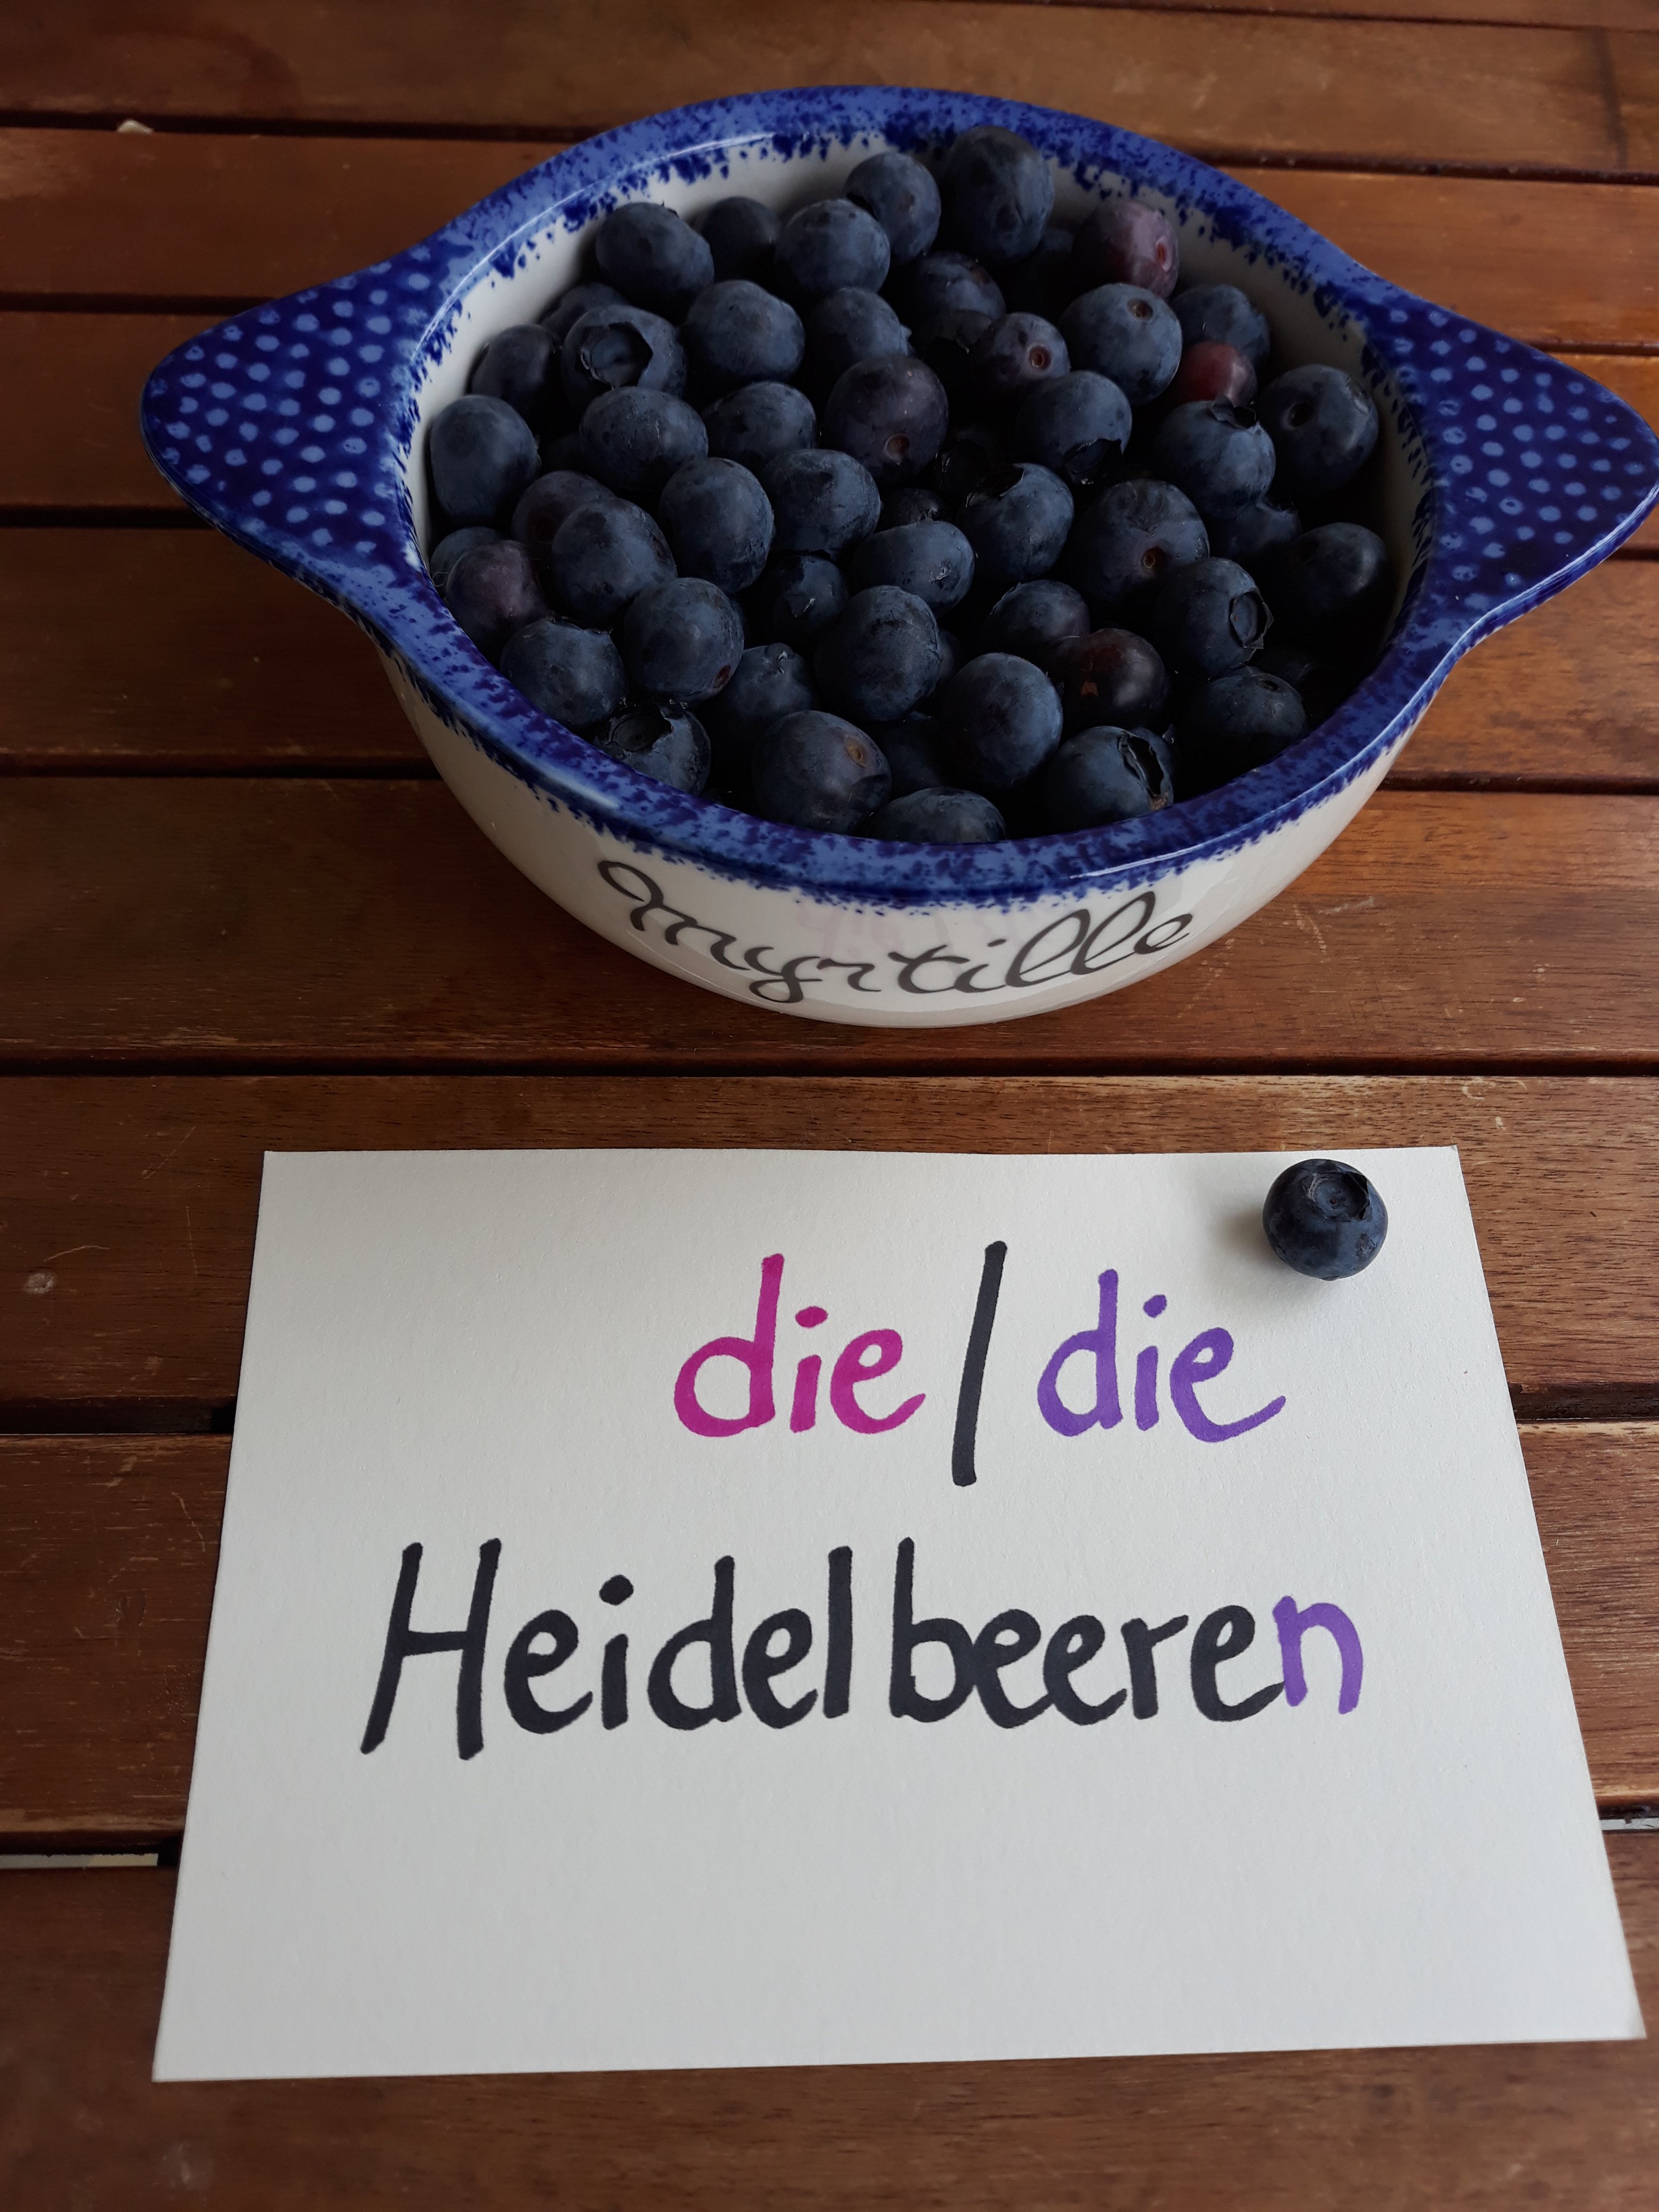 Myrtille
die/die
Heidelbeeren